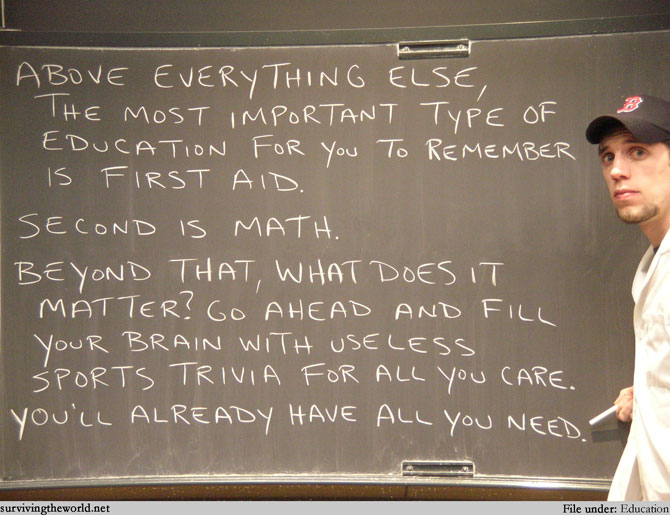 ABOVE EVERYTHING ELSE,
THE MOST IMPORTANT TYPE OF
EDUCATION FOR YOU TO REMEMBER
IS FIRST AID.
SECOND IS MATH.
BEYOND THAT, WHAT DOES IT
MATTER? GO AHEAD AND FILL
YOUR BRAIN WITH USELESS
SPORTS TRIVIA FOR ALL YOU CARE.
YOU'LL ALREADY HAVE ALL YOU NEED.
B
survivingtheworld.net
File under: Education